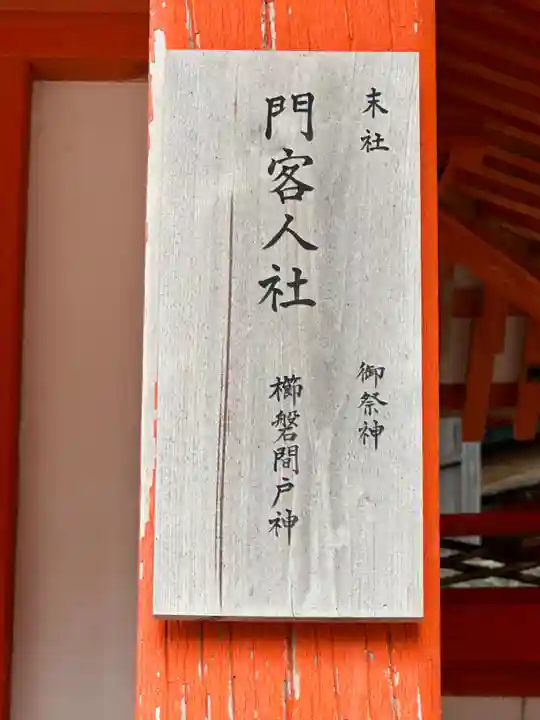 末社
御祭神
門客人社
櫛磐間戸神